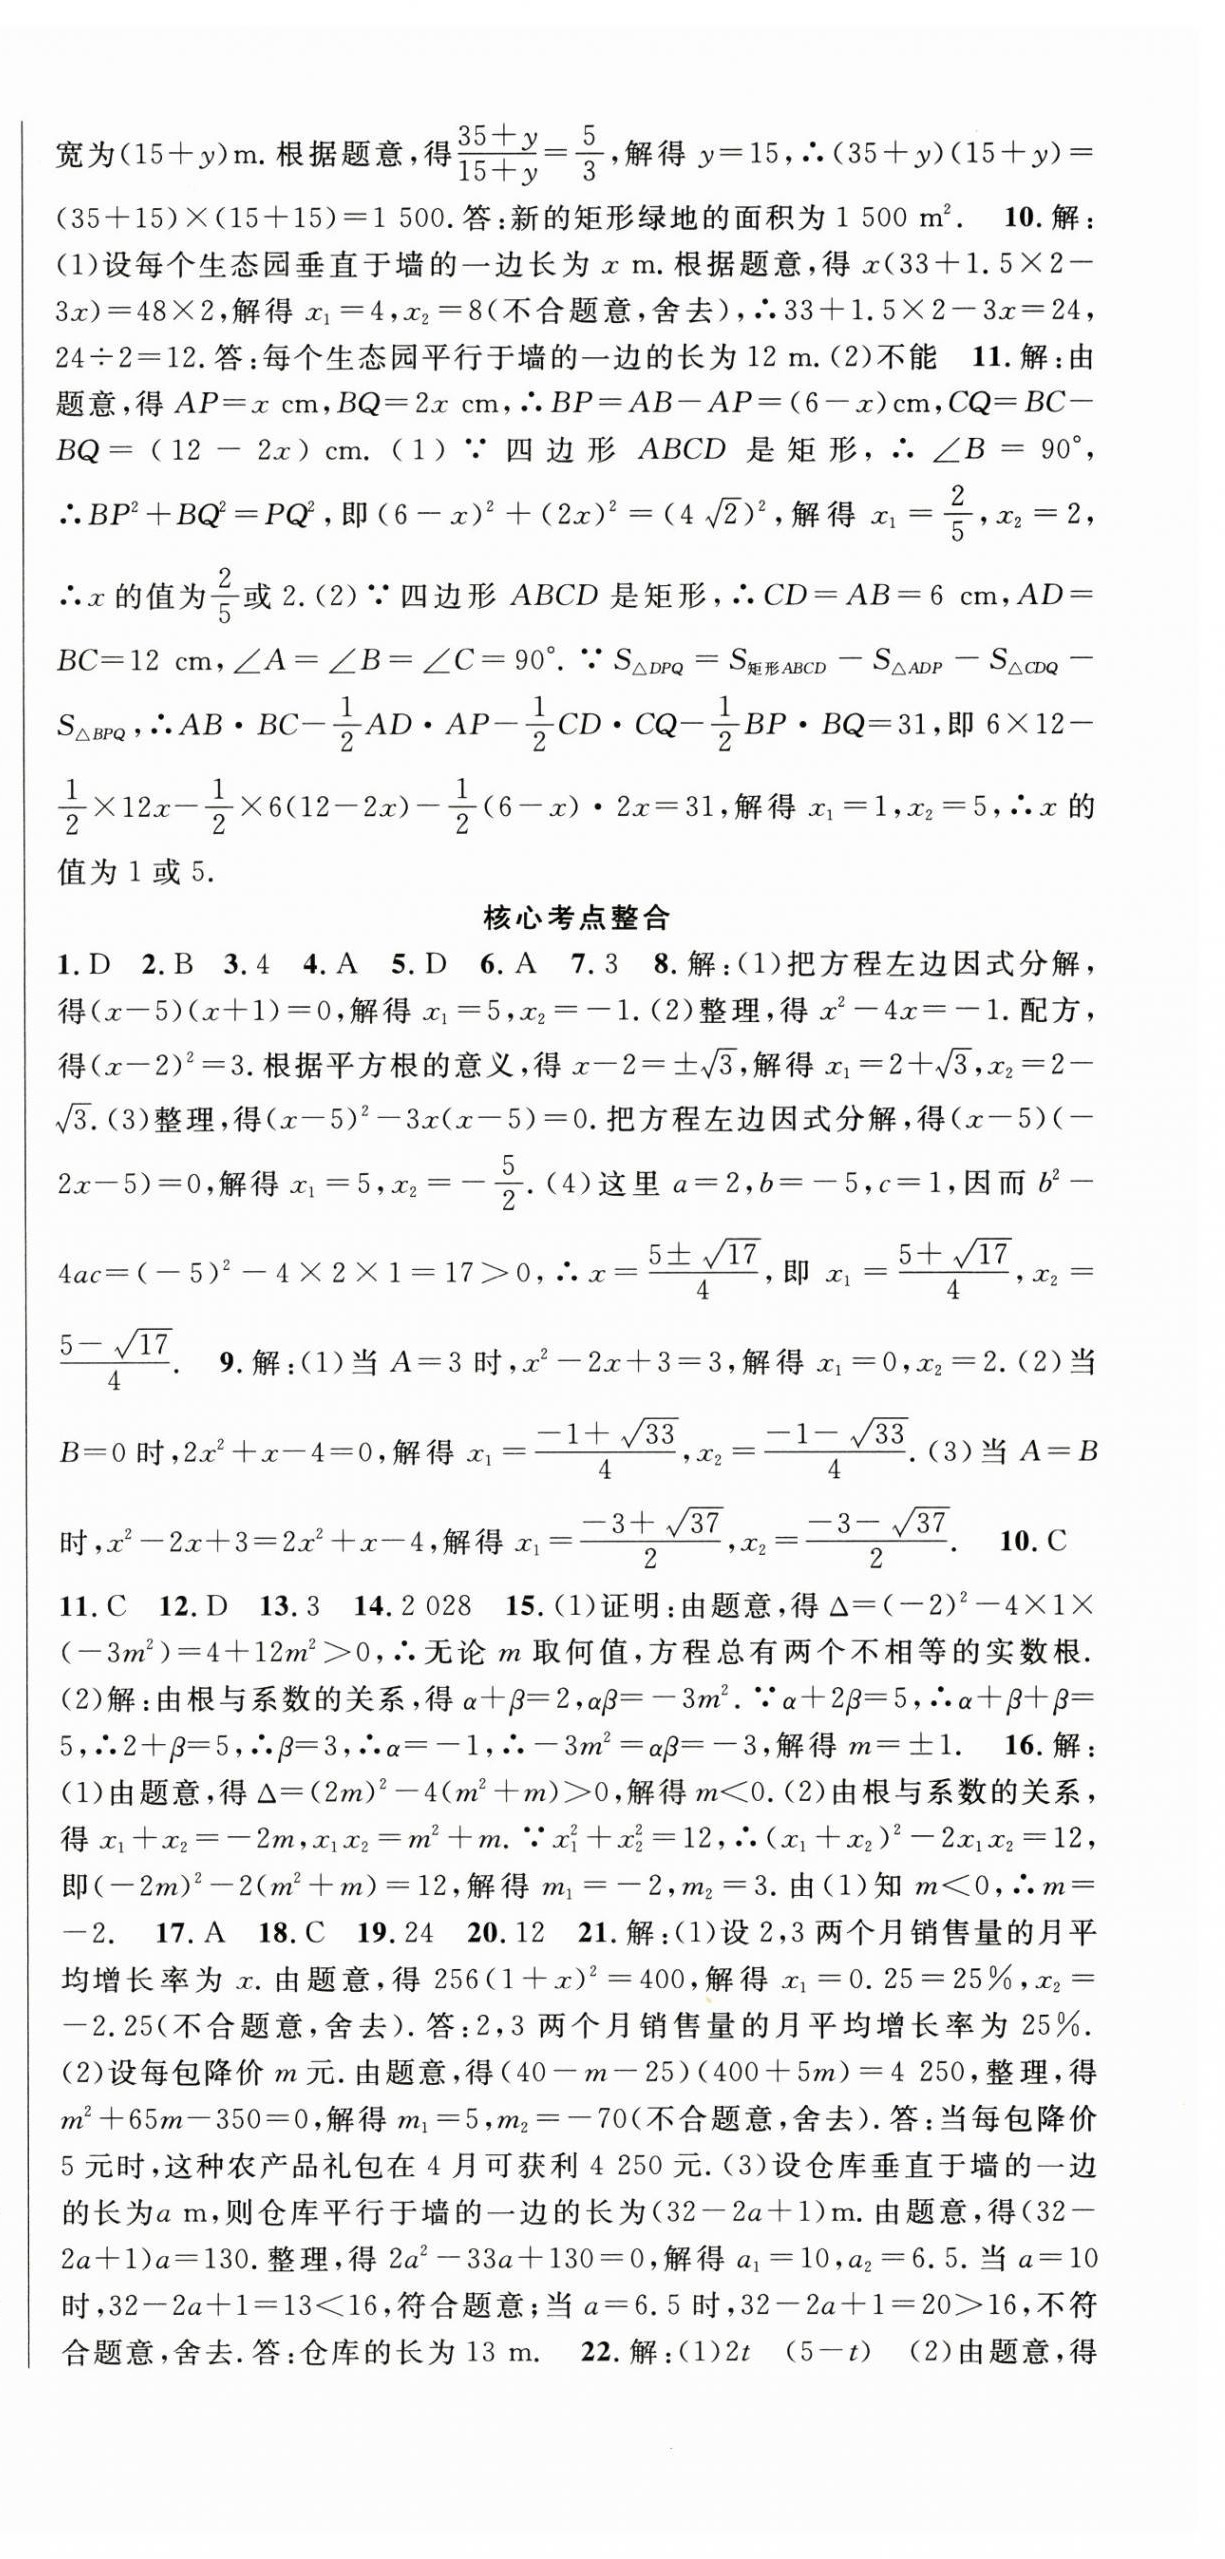 宽为(15+y)m.根据题意,得$\frac{35+y}{15+y}=\frac{5}{3}$,解得 y=15,∴(35+y)(15+y)=
(35+15)×(15+15)=1 500.答:新的矩形绿地的面积为 1 500 m². 10.解:
(1)设每个生态园垂直于墙的一边长为 x m.根据题意,得 x(33+1.5×2-
3x)=48×2,解得 x₁=4,x₂=8(不合题意,舍去),∴33+1.5×2-3x=24,
24÷2=12.答:每个生态园平行于墙的一边的长为 12 m.(2)不能 11.解:由
题意,得 AP=x cm,BQ=2x cm,∴BP=AB-AP=(6-x)cm,CQ=BC-
BQ=(12-2x)cm.(1)∵四边形 ABCD 是矩形,∴∠B=90°,
∴BP²+BQ²=PQ²,即(6-x)²+(2x)²=(4√2)²,解得 x₁=$\frac{2}{5}$,x₂=2,
∴x 的值为$\frac{2}{5}$或 2.(2)∵四边形 ABCD 是矩形,∴CD=AB=6 cm,AD=
BC=12 cm,∠A=∠B=∠C=90°.∵$S_{△DPQ}=S_{矩形ABCD}-S_{△ADP}-S_{△CDQ}-$
$S_{△BPQ}$,∴AB·BC-$\frac{1}{2}$AD·AP-$\frac{1}{2}$CD·CQ-$\frac{1}{2}$BP·BQ=31,即 6×12-
$\frac{1}{2}$×12x-$\frac{1}{2}$×6(12-2x)-$\frac{1}{2}$(6-x)·2x=31,解得 x₁=1,x₂=5,∴x 的
值为 1 或 5.
核心考点整合
1.D 2.B 3.4 4.A 5.D 6.A 7.3 8.解:(1)把方程左边因式分解,
得(x-5)(x+1)=0,解得 x₁=5,x₂=-1.(2)整理,得 x²-4x=-1.配方,
得(x-2)²=3.根据平方根的意义,得 x-2=±√3,解得 x₁=2+√3,x₂=2-
√3.(3)整理,得(x-5)²-3x(x-5)=0.把方程左边因式分解,得(x-5)(-
2x-5)=0,解得 x₁=5,x₂=-$\frac{5}{2}$.(4)这里 a=2,b=-5,c=1,因而 b²-
4ac=(-5)²-4×2×1=17>0,∴x=$\frac{5±\sqrt{17}}{4}$,即 x₁=$\frac{5+\sqrt{17}}{4}$,x₂=
$\frac{5-\sqrt{17}}{4}$. 9.解:(1)当 A=3 时,x²-2x+3=3,解得 x₁=0,x₂=2.(2)当
B=0 时,2x²+x-4=0,解得 x₁=$\frac{-1+\sqrt{33}}{4}$,x₂=$\frac{-1-\sqrt{33}}{4}$.(3)当 A=B
时,x²-2x+3=2x²+x-4,解得 x₁=$\frac{-3+\sqrt{37}}{2}$,x₂=$\frac{-3-\sqrt{37}}{2}$. 10.C
11.C 12.D 13.3 14.2 028 15.(1)证明:由题意,得 Δ=(-2)²-4×1×
(-3m²)=4+12m²>0,∴无论 m 取何值,方程总有两个不相等的实数根.
(2)解:由根与系数的关系,得 α+β=2,αβ=-3m².∵α+2β=5,∴α+β+β=
5,∴2+β=5,∴β=3,∴α=-1,∴-3m²=αβ=-3,解得 m=±1. 16.解:
(1)由题意,得 Δ=(2m)²-4(m²+m)>0,解得 m<0.(2)由根与系数的关系,
得 x₁+x₂=-2m,x₁x₂=m²+m.∵x₁²+x₂²=12,∴(x₁+x₂)²-2x₁x₂=12,
即(-2m)²-2(m²+m)=12,解得 m₁=-2,m₂=3.由(1)知 m<0,∴m=
-2. 17.A 18.C 19.24 20.12 21.解:(1)设 2,3 两个月销售量的月平
均增长率为 x.由题意,得 256(1+x)²=400,解得 x₁=0.25=25%,x₂=
-2.25(不合题意,舍去).答:2,3 两个月销售量的月平均增长率为 25%.
(2)设每包降价 m 元.由题意,得(40-m-25)(400+5m)=4 250,整理,得
m²+65m-350=0,解得 m₁=5,m₂=-70(不合题意,舍去).答:当每包降价
5 元时,这种农产品礼包在 4 月可获利 4 250 元.(3)设仓库垂直于墙的一边
的长为a m,则仓库平行于墙的一边的长为(32-2a+1)m.由题意,得(32-
2a+1)a=130.整理,得 2a²-33a+130=0,解得 a₁=10,a₂=6.5.当 a=10
时,32-2a+1=13<16,符合题意;当 a=6.5 时,32-2a+1=20>16,不符
合题意,舍去.答:仓库的长为 13 m. 22.解:(1)2t (5-t) (2)由题意,得